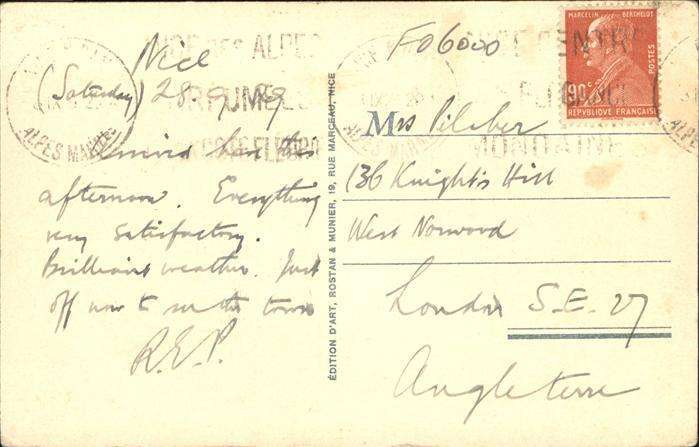 Nice
(Saturday) 28.9.29
Arrived here this
afternoon. Everything
very satisfactory.
Brilliant weather. Just
off now to see the town
R.E.P.
ÉDITION D'ART, ROSTAN & MUNIER, 19, RUE MARCEAU, NICE
F06000
MARCELIN BERTHELOT
90c
POSTES
REPVBLIQVE FRANÇAISE
NICE DES ALPES
ALPES MARITIMES
CENTRE
MONDAINE
Mrs Pilcher
136 Knight's Hill
West Norwood
London S.E. 27
Angleterre